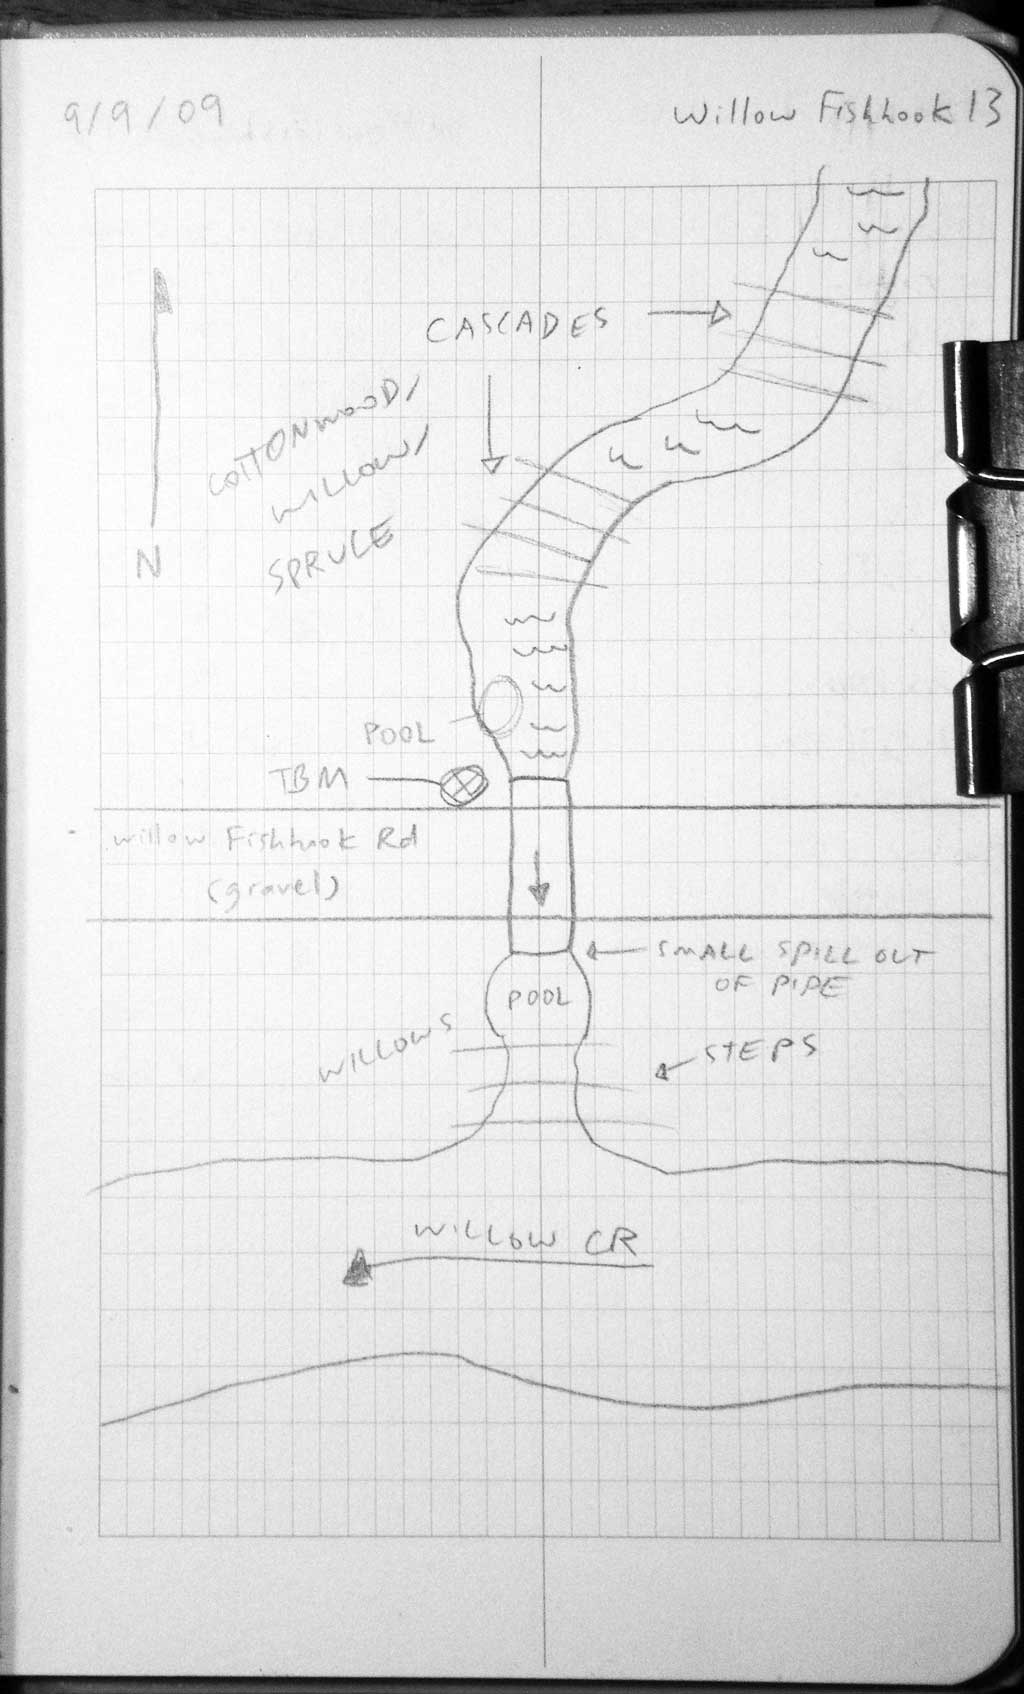 9/9/09
Willow Fishhook 13
CASCADES
COTTONWOOD/
WILLOW/
SPRUCE
N
POOL
TBM
Willow Fishhook Rd
(gravel)
SMALL SPILL OUT
OF PIPE
POOL
WILLOWS
STEPS
WILLOW CR